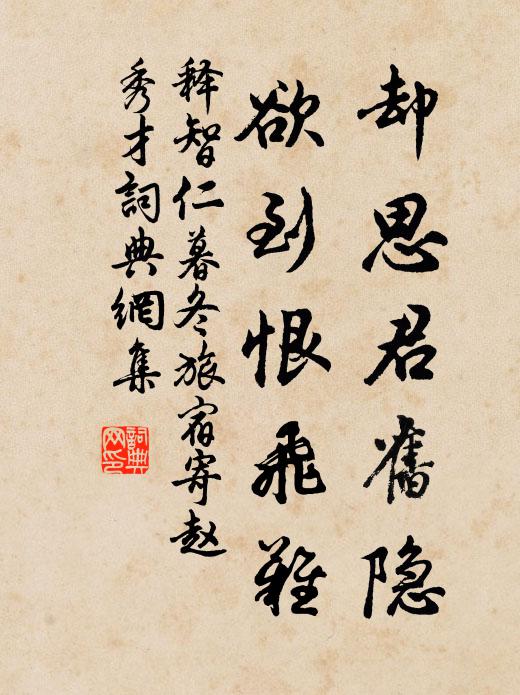 却思君舊隐
欲到恨飛難
释智仁暮冬旅宿寄赵
秀才詞典網集
詞典
网印